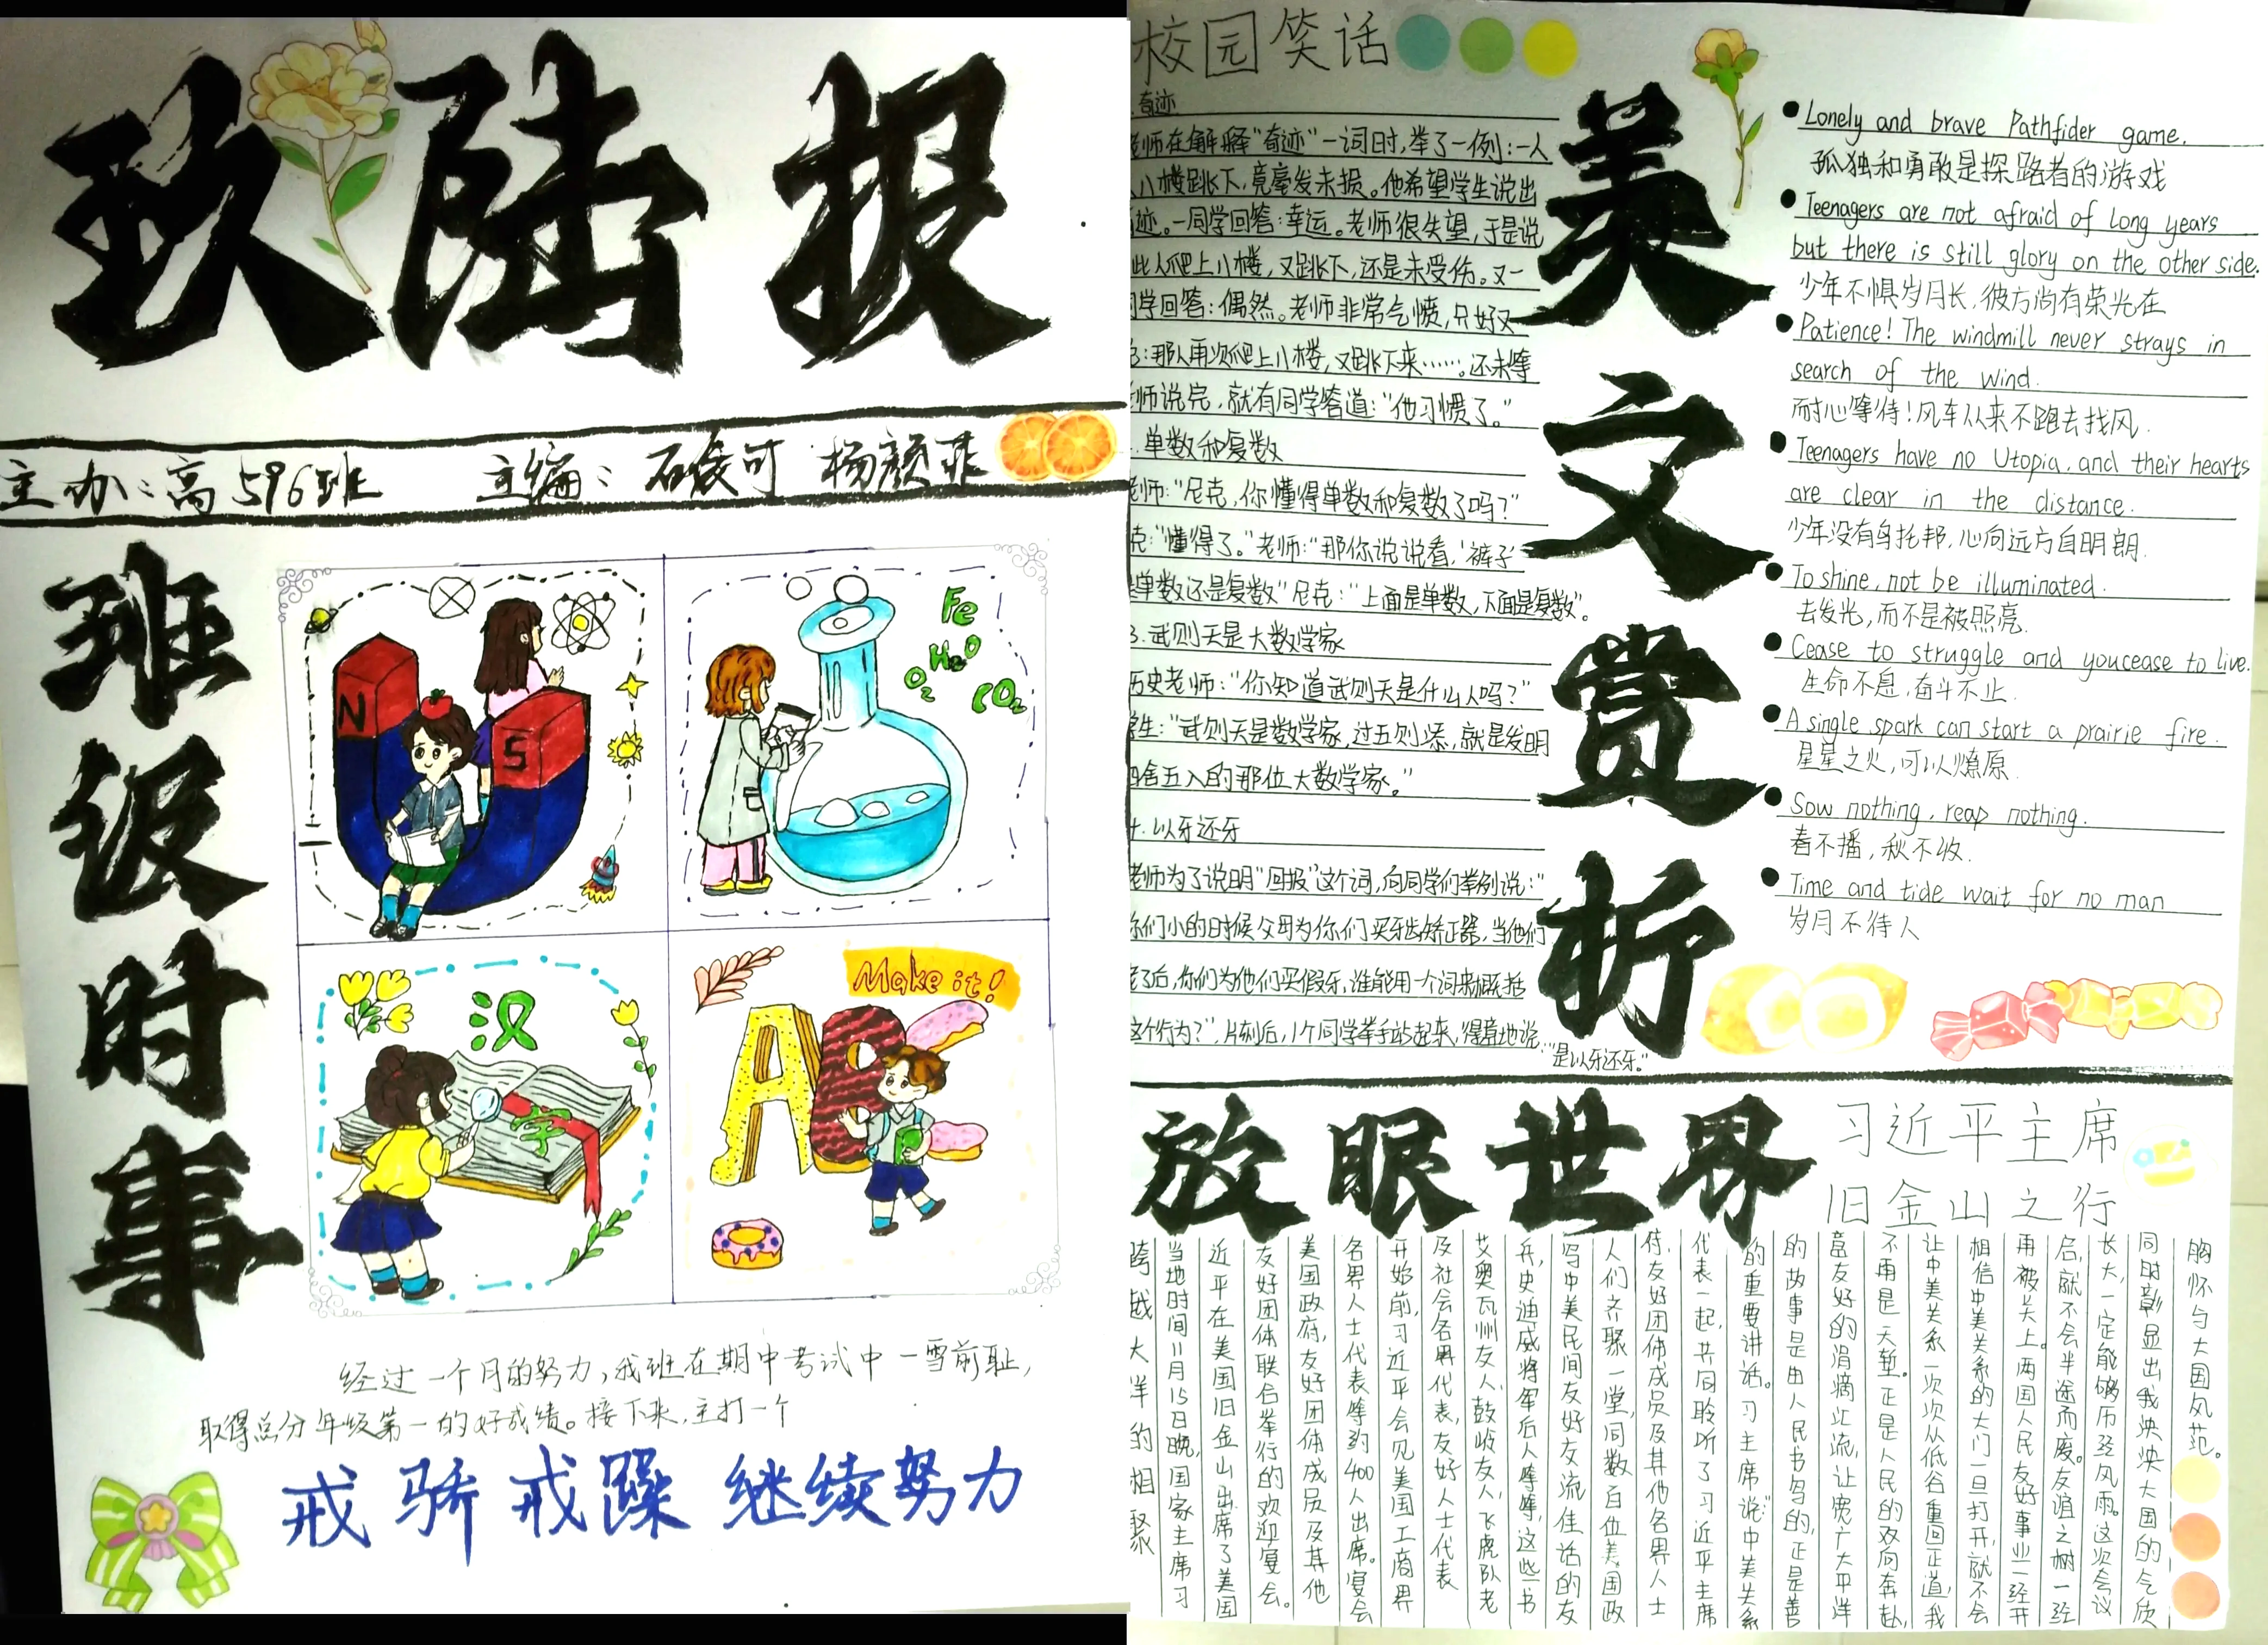 玖陆报
主办：高596班 主编：石袁可 杨颜菲
班级时事
N
S
Fe
H₂O
O₂
CO₂
汉
字
Make it!
AB
经过一个月的努力，我班在期中考试中一雪前耻，
取得总分年级第一的好成绩。接下来，主打一个
戒骄戒躁 继续努力
校园笑话
奇迹
老师在解释"奇迹"一词时，举了一例：一人
从八楼跳下，竟毫发未损。他希望学生说出
奇迹。一同学回答：幸运。老师很失望，于是说
此人爬上八楼，又跳下，还是未受伤。又一
同学回答：偶然。老师非常气愤，只好又
：那人再次爬上八楼，又跳下来……。还未等
老师说完，就有同学答道："他习惯了。"
.单数和复数
老师："尼克，你懂得单数和复数了吗？"
克："懂得了。"老师："那你说说看，'裤子'
是单数还是复数"尼克："上面是单数，下面是复数"。
3.武则天是大数学家
历史老师："你知道武则天是什么人吗？"
学生："武则天是数学家，过五则添，就是发明
四舍五入的那位大数学家。"
4.以牙还牙
老师为了说明"回报"这个词，向同学们举例说："
你们小的时候父母为你们买牙齿矫正器，当他们
老了后，你们为他们买假牙，谁能用一个词来概括
这个行为？"，片刻后，1个同学举手站起来，得意地说："是以牙还牙。"
美文赏析
Lonely and brave Pathfider game.
孤独和勇敢是探路者的游戏
Teenagers are not afraid of long years
but there is still glory on the other side.
少年不惧岁月长，彼方尚有荣光在
Patience! The windmill never strays in
search of the wind.
耐心等待！风车从来不跑去找风．
Teenagers have no Utopia, and their hearts
are clear in the distance.
少年没有乌托邦，心向远方自明朗．
To shine, not be illuminated.
去发光，而不是被照亮．
Cease to struggle and youcease to live.
生命不息，奋斗不止．
A single spark can start a prairie fire.
星星之火，可以燎原．
Sow nothing, reap nothing.
春不播，秋不收．
Time and tide wait for no man
岁月不待人
放眼世界
习近平主席
旧金山之行
跨越大洋的相聚
当地时间11月15日晚，国家主席习
近平在美国旧金山出席了美国
友好团体联合举行的欢迎宴会。
美国政府，友好团体成员及其他
各界人士代表等约400人出席。宴会
开始前，习近平会见美国工商界
及社会各界代表，友好人士代表
艾奥瓦州友人，鼓岭友人，飞虎队老
兵，史迪威将军后人等等，这些书
写中美民间友好交流佳话的友
人们齐聚一堂，同数百位美国政
府，友好团体成员及其他各界人士
代表一起，共同聆听了习近平主席
的重要讲话。习主席说："中美关系
的故事是由人民书写的，正是善
意友好的涓滴汇流，让宽广太平洋
不再是天堑。正是人民的双向奔赴，
让中美关系一次次从低谷重回正道，我
相信中美关系的大门一旦打开，就不会
再被关上。两国人民友好事业一经开
启，就不会半途而废。友谊之树一经
长大，一定能够历经风雨。这次会议
同时彰显出我泱泱大国的气质
胸怀与大国风范。